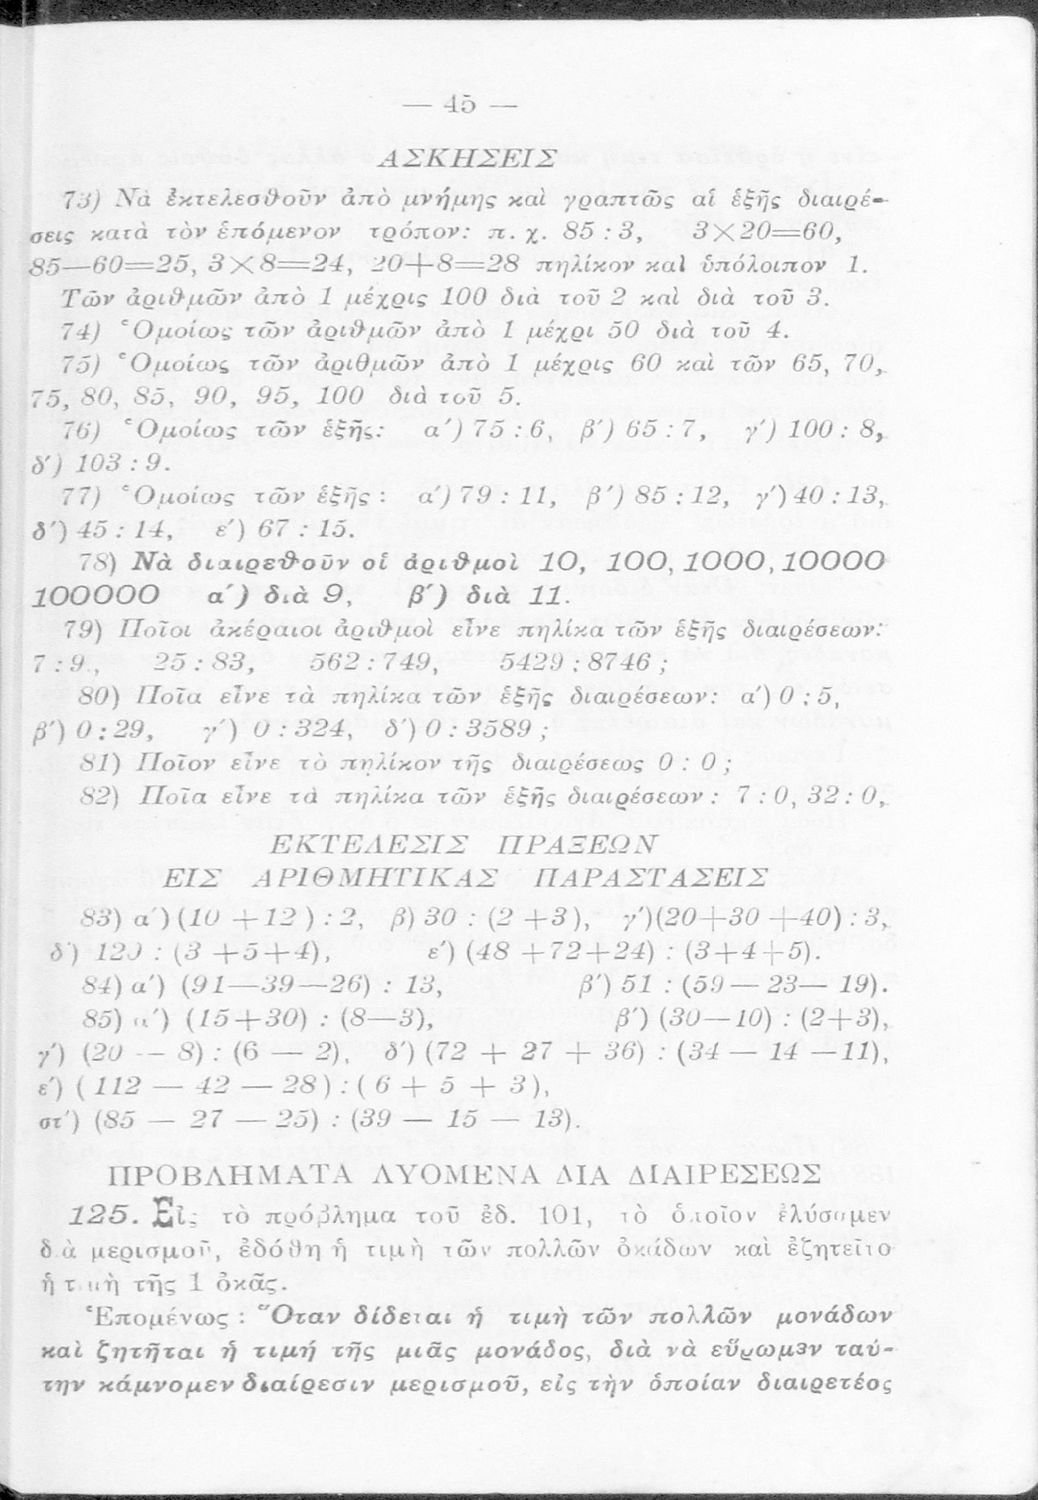 — 45 —
ΑΣΚΗΣΕΙΣ
73) Νὰ ἐκτελεσθοῦν ἀπὸ μνήμης καὶ γραπτῶς αἱ ἑξῆς διαιρέ-
σεις κατὰ τὸν ἑπόμενον τρόπον: π. χ. 85 : 3, 3×20=60,
85—60=25, 3×8=24, 20+8=28 πηλίκον καὶ ὑπόλοιπον 1.
Τῶν ἀριθμῶν ἀπὸ 1 μέχρις 100 διὰ τοῦ 2 καὶ διὰ τοῦ 3.
74) Ὁμοίως τῶν ἀριθμῶν ἀπὸ 1 μέχρι 50 διὰ τοῦ 4.
75) Ὁμοίως τῶν ἀριθμῶν ἀπὸ 1 μέχρις 60 καὶ τῶν 65, 70,
75, 80, 85, 90, 95, 100 διὰ τοῦ 5.
76) Ὁμοίως τῶν ἑξῆς: α΄) 75 : 6, β΄) 65 : 7, γ΄) 100 : 8,
δ΄) 103 : 9.
77) Ὁμοίως τῶν ἑξῆς : α΄) 79 : 11, β΄) 85 : 12, γ΄) 40 : 13,
δ΄) 45 : 14, ε΄) 67 : 15.
78) Νὰ διαιρεθοῦν οἱ ἀριθμοὶ 10, 100, 1000, 10000
100000 α΄) διὰ 9, β΄) διὰ 11.
79) Ποῖοι ἀκέραιοι ἀριθμοὶ εἶνε πηλίκα τῶν ἑξῆς διαιρέσεων:
7 : 9, 25 : 83, 562 : 749, 5429 : 8746 ;
80) Ποῖα εἶνε τὰ πηλίκα τῶν ἑξῆς διαιρέσεων: α΄) 0 : 5,
β΄) 0 : 29, γ΄) 0 : 324, δ΄) 0 : 3589 ;
81) Ποῖον εἶνε τὸ πηλίκον τῆς διαιρέσεως 0 : 0 ;
82) Ποῖα εἶνε τὰ πηλίκα τῶν ἑξῆς διαιρέσεων : 7 : 0, 32 : 0,
ΕΚΤΕΛΕΣΙΣ ΠΡΑΞΕΩΝ
ΕΙΣ ΑΡΙΘΜΗΤΙΚΑΣ ΠΑΡΑΣΤΑΣΕΙΣ
83) α΄) (10 +12 ) : 2, β) 30 : (2 +3), γ΄)(20+30 +40) : 3,
δ΄) 120 : (3 +5+4), ε΄) (48 +72+24) : (3+4+5).
84) α΄) (91—39—26) : 13, β΄) 51 : (59 — 23— 19).
85) α΄) (15+30) : (8—3), β΄) (30—10) : (2+3),
γ΄) (20 — 8) : (6 — 2), δ΄) (72 + 27 + 36) : (34 — 14 —11),
ε΄) ( 112 — 42 — 28 ) : ( 6 + 5 + 3 ),
στ΄) (85 — 27 — 25) : (39 — 15 — 13).
ΠΡΟΒΛΗΜΑΤΑ ΛΥΟΜΕΝΑ ΔΙΑ ΔΙΑΙΡΕΣΕΩΣ
125. Εἰς τὸ πρόβλημα τοῦ ἐδ. 101, τὸ ὁποῖον ἐλύσαμεν
διὰ μερισμοῦ, ἐδόθη ἡ τιμὴ τῶν πολλῶν ὀκάδων καὶ ἐζητεῖτο
ἡ τιμὴ τῆς 1 ὀκᾶς.
Ἑπομένως : Ὅταν δίδεται ἡ τιμὴ τῶν πολλῶν μονάδων
καὶ ζητῆται ἡ τιμή τῆς μιᾶς μονάδος, διὰ νὰ εὕρωμεν ταύ-
την κάμνομεν διαίρεσιν μερισμοῦ, εἰς τὴν ὁποίαν διαιρετέος